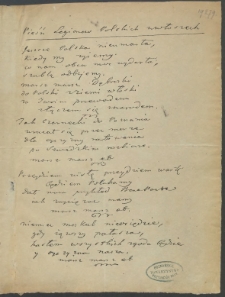 Pieśń Legionów Polskich we Włoszech
Jeszcze Polska nie umarła,
kiedy my żyjemy.
co nam obca moc wydarła,
szablą odbijemy.
marsz marsz Dąbrowski
do Polski z ziemi włoski
za Twoim przewodem
złączem się z narodem.
Jak Czarnecki do Poznania
wracał się przez morze
dla ojczyzny ratowania
po szwedzkim rozbiorze.
marsz marsz etc.
Przejdziem Wisłę przejdziem Wartę
będziem Polakami
dał nam przykład Bonaparte
jak zwyciężać mamy
marsz marsz etc.
Niemiec, Moskal nie osiędzie,
gdy jąwszy pałasza,
hasłem wszystkich zgoda będzie
y ojczyzna nasza.
marsz marsz etc.